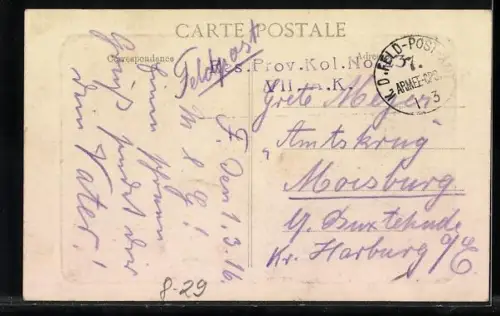 CARTE POSTALE
Correspondance
Feldpost
F. den 1.3.16.
M. l. G.!
Einen schönen
Gruß sendet dir
dein Vater!
es. Prov. Kol. No 37.
VII. A. K.
K. D. FELD-POST
ARMEE-CPS.
1. 3
Grete Meyer
"Amtskrug"
Moisburg
b. Buxtehude
Kr. Harburg a/E
8-29